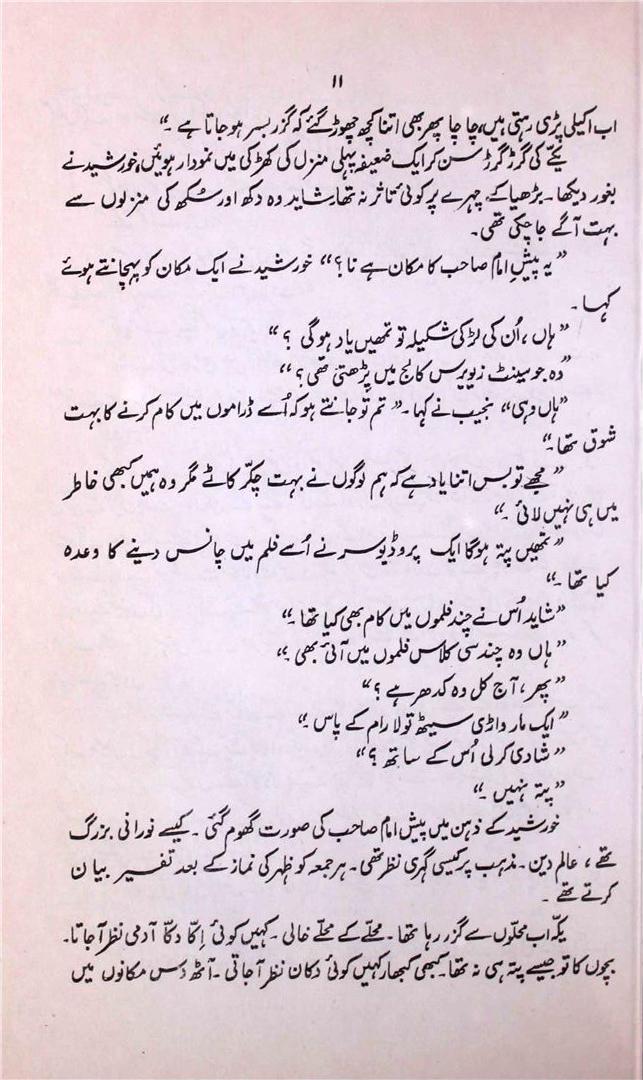 ۱۱
اب اکیلی پڑی رہتی ہیں، چاچا پھر بھی اتنا کچھ چھوڑ گئے کہ گزر بسر ہو جاتا ہے ۔“
یکّے کی گڑ گڑ گڑ سن کر ایک ضعیفہ پہلی منزل کی کھڑکی میں نمودار ہوئیں، خورشید نے
بغور دیکھا۔ بڑھیا کے چہرے پر کوئی تاثر نہ تھا، شاید وہ دکھ اور سُکھ کی منزلوں سے
بہت آگے جا چکی تھی۔
”یہ پیش امام صاحب کا مکان ہے نا؟“ خورشید نے ایک مکان کو پہچانتے ہوئے
کہا۔
”ہاں، اُن کی لڑکی شکیلہ تو تمھیں یاد ہو گی ؟“
”وہ جو سینٹ زیویرس کالج میں پڑھتی تھی؟“
”ہاں وہی“ نجیب نے کہا۔ ”تم تو جانتے ہو کہ اُسے ڈراموں میں کام کرنے کا بہت
شوق تھا۔“
”مجھے تو بس اتنا یاد ہے کہ ہم لوگوں نے بہت چکّر کاٹے مگر وہ ہمیں کبھی خاطر
میں ہی نہیں لائی ۔“
”تمھیں پتہ ہوگا ایک پروڈیوسر نے اُسے فلم میں چانس دینے کا وعدہ
کیا تھا ۔“
”شاید اُس نے چند فلموں میں کام بھی کیا تھا ۔“
”ہاں وہ چند سی کلاس فلموں میں آئی بھی ۔“
”پھر، آج کل وہ کدھر ہے ؟“
”ایک مارواڑی سیٹھ تولا رام کے پاس ۔“
”شادی کر لی اُس کے ساتھ ؟“
”پتہ نہیں ۔“
خورشید کے ذہن میں پیش امام صاحب کی صورت گھوم گئی ۔ کیسے نورانی بزرگ
تھے ، عالم دین ۔ مذہب پر کیسی گہری نظر تھی ۔ ہر جمعہ کو ظہر کی نماز کے بعد تفسیر بیان
کرتے تھے ۔
یکّہ اب محلّوں سے گزر رہا تھا ۔ محلّے کے محلّے خالی ۔ کہیں کوئی اِکّا دکّا آدمی نظر آ جاتا۔
بچوں کا تو جیسے پتہ ہی نہ تھا۔ کبھی کبھار کہیں کوئی دکان نظر آ جاتی ۔ آٹھ دَس مکانوں میں